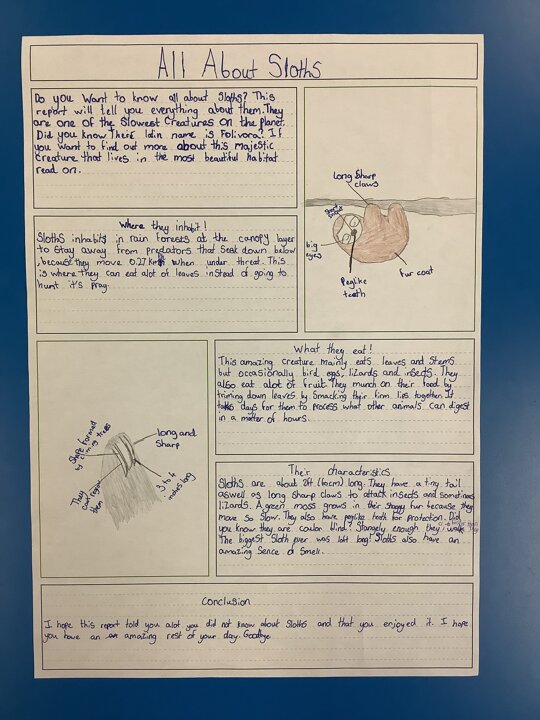 All About Sloths
Do you want to know all about Sloths? This
report will tell you everything about them. They
are one of the slowest Creatures on the planet.
Did you know there latin name is Folivora? If
you want to find out more about this majestic
creature that lives in the most beautiful habitat
read on.
long sharp
claws
big
eyes
Peglike
teeth
fur coat
Where they inhabit!
Sloths inhabits in rain forests at the canopy layer
to stay away from predators that beast down below
,because they move 0.27 when under threat. This
is where they can eat alot of leaves instead of going to
hunt it's pray.
What they eat!
This amazing creature mainly eats leaves and stems
but occasionally bird eggs, lizards and insects. They
also eat alot of fruit. They munch on their food by
triming down leaves by smacking their firm lips together. It
takes days for them to process what other animals can digest
in a matter of hours.
Shape formed
by climing trees
long and
sharp
They
can regrow
them
3 to 4
inches long
Their characteristics
Sloths are about 2ft (60cm) long. They have a tiny tail
aswell as long sharp claws to attack insects and sometimes
lizards. A green moss grows in their shaggy fur because they
move so slow. They also have peglike teeth for protection. Did
you know they are coulor blind? Stangely enough they
The biggest Sloth ever was 10ft long! Sloths also have an
amazing sence of smell.
Conclusion
I hope this report told you alot you did not know about Sloths and that you enjoyed it. I hope
you have an amazing rest of your day. Goodbye